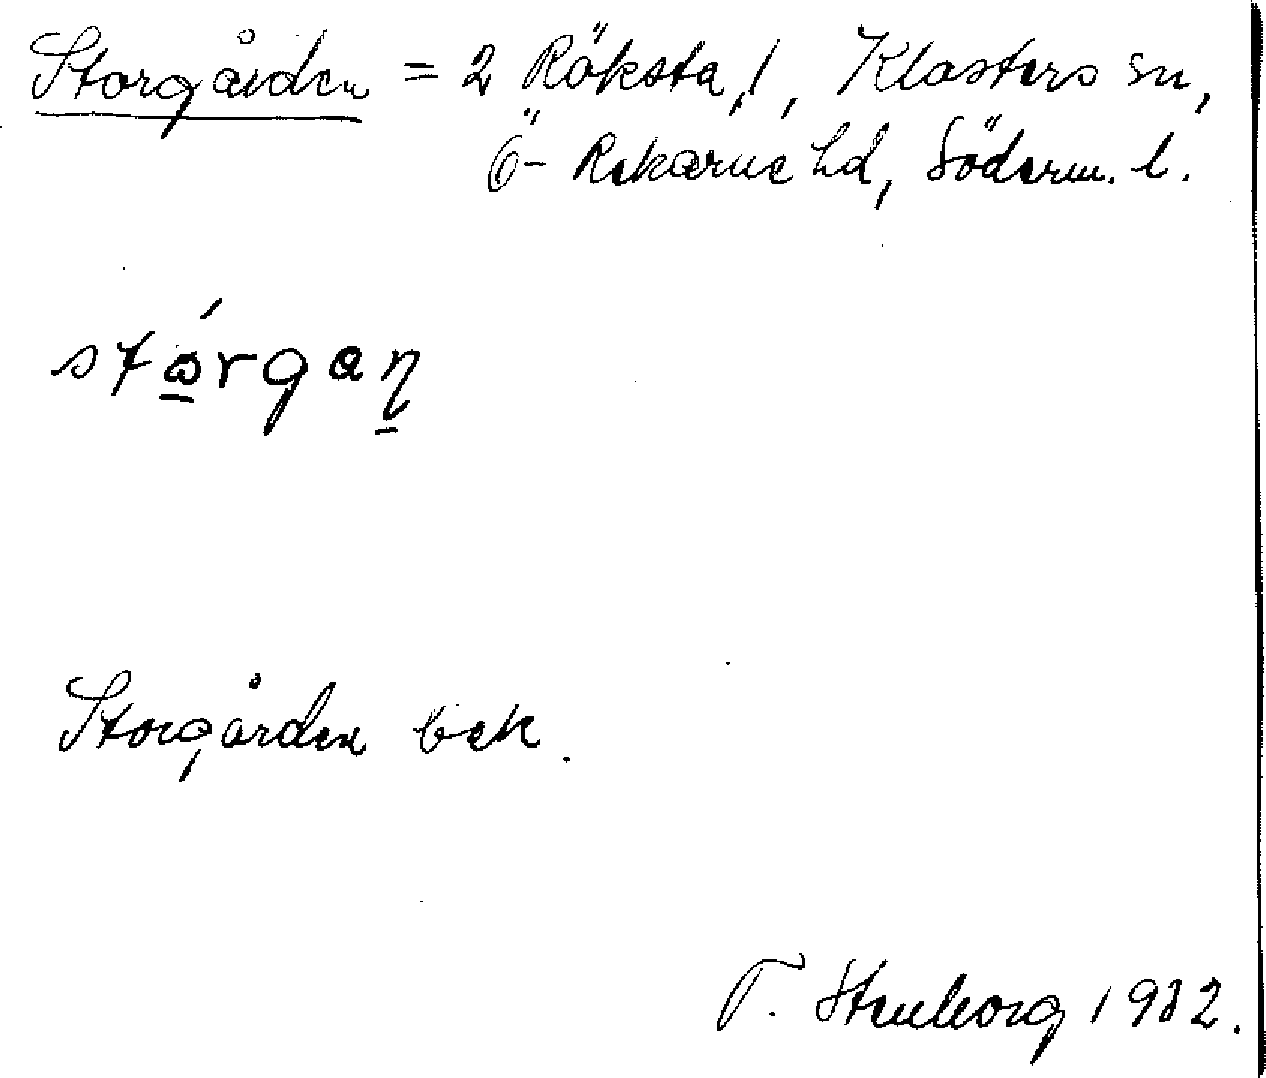 Storgården = 2 Röksta, 1, Klosters sn,
Ö- Rekarne hd, Söderm. l.
stǫ́rgaṇ
Storgården bek.
T. Stenborg 1932.